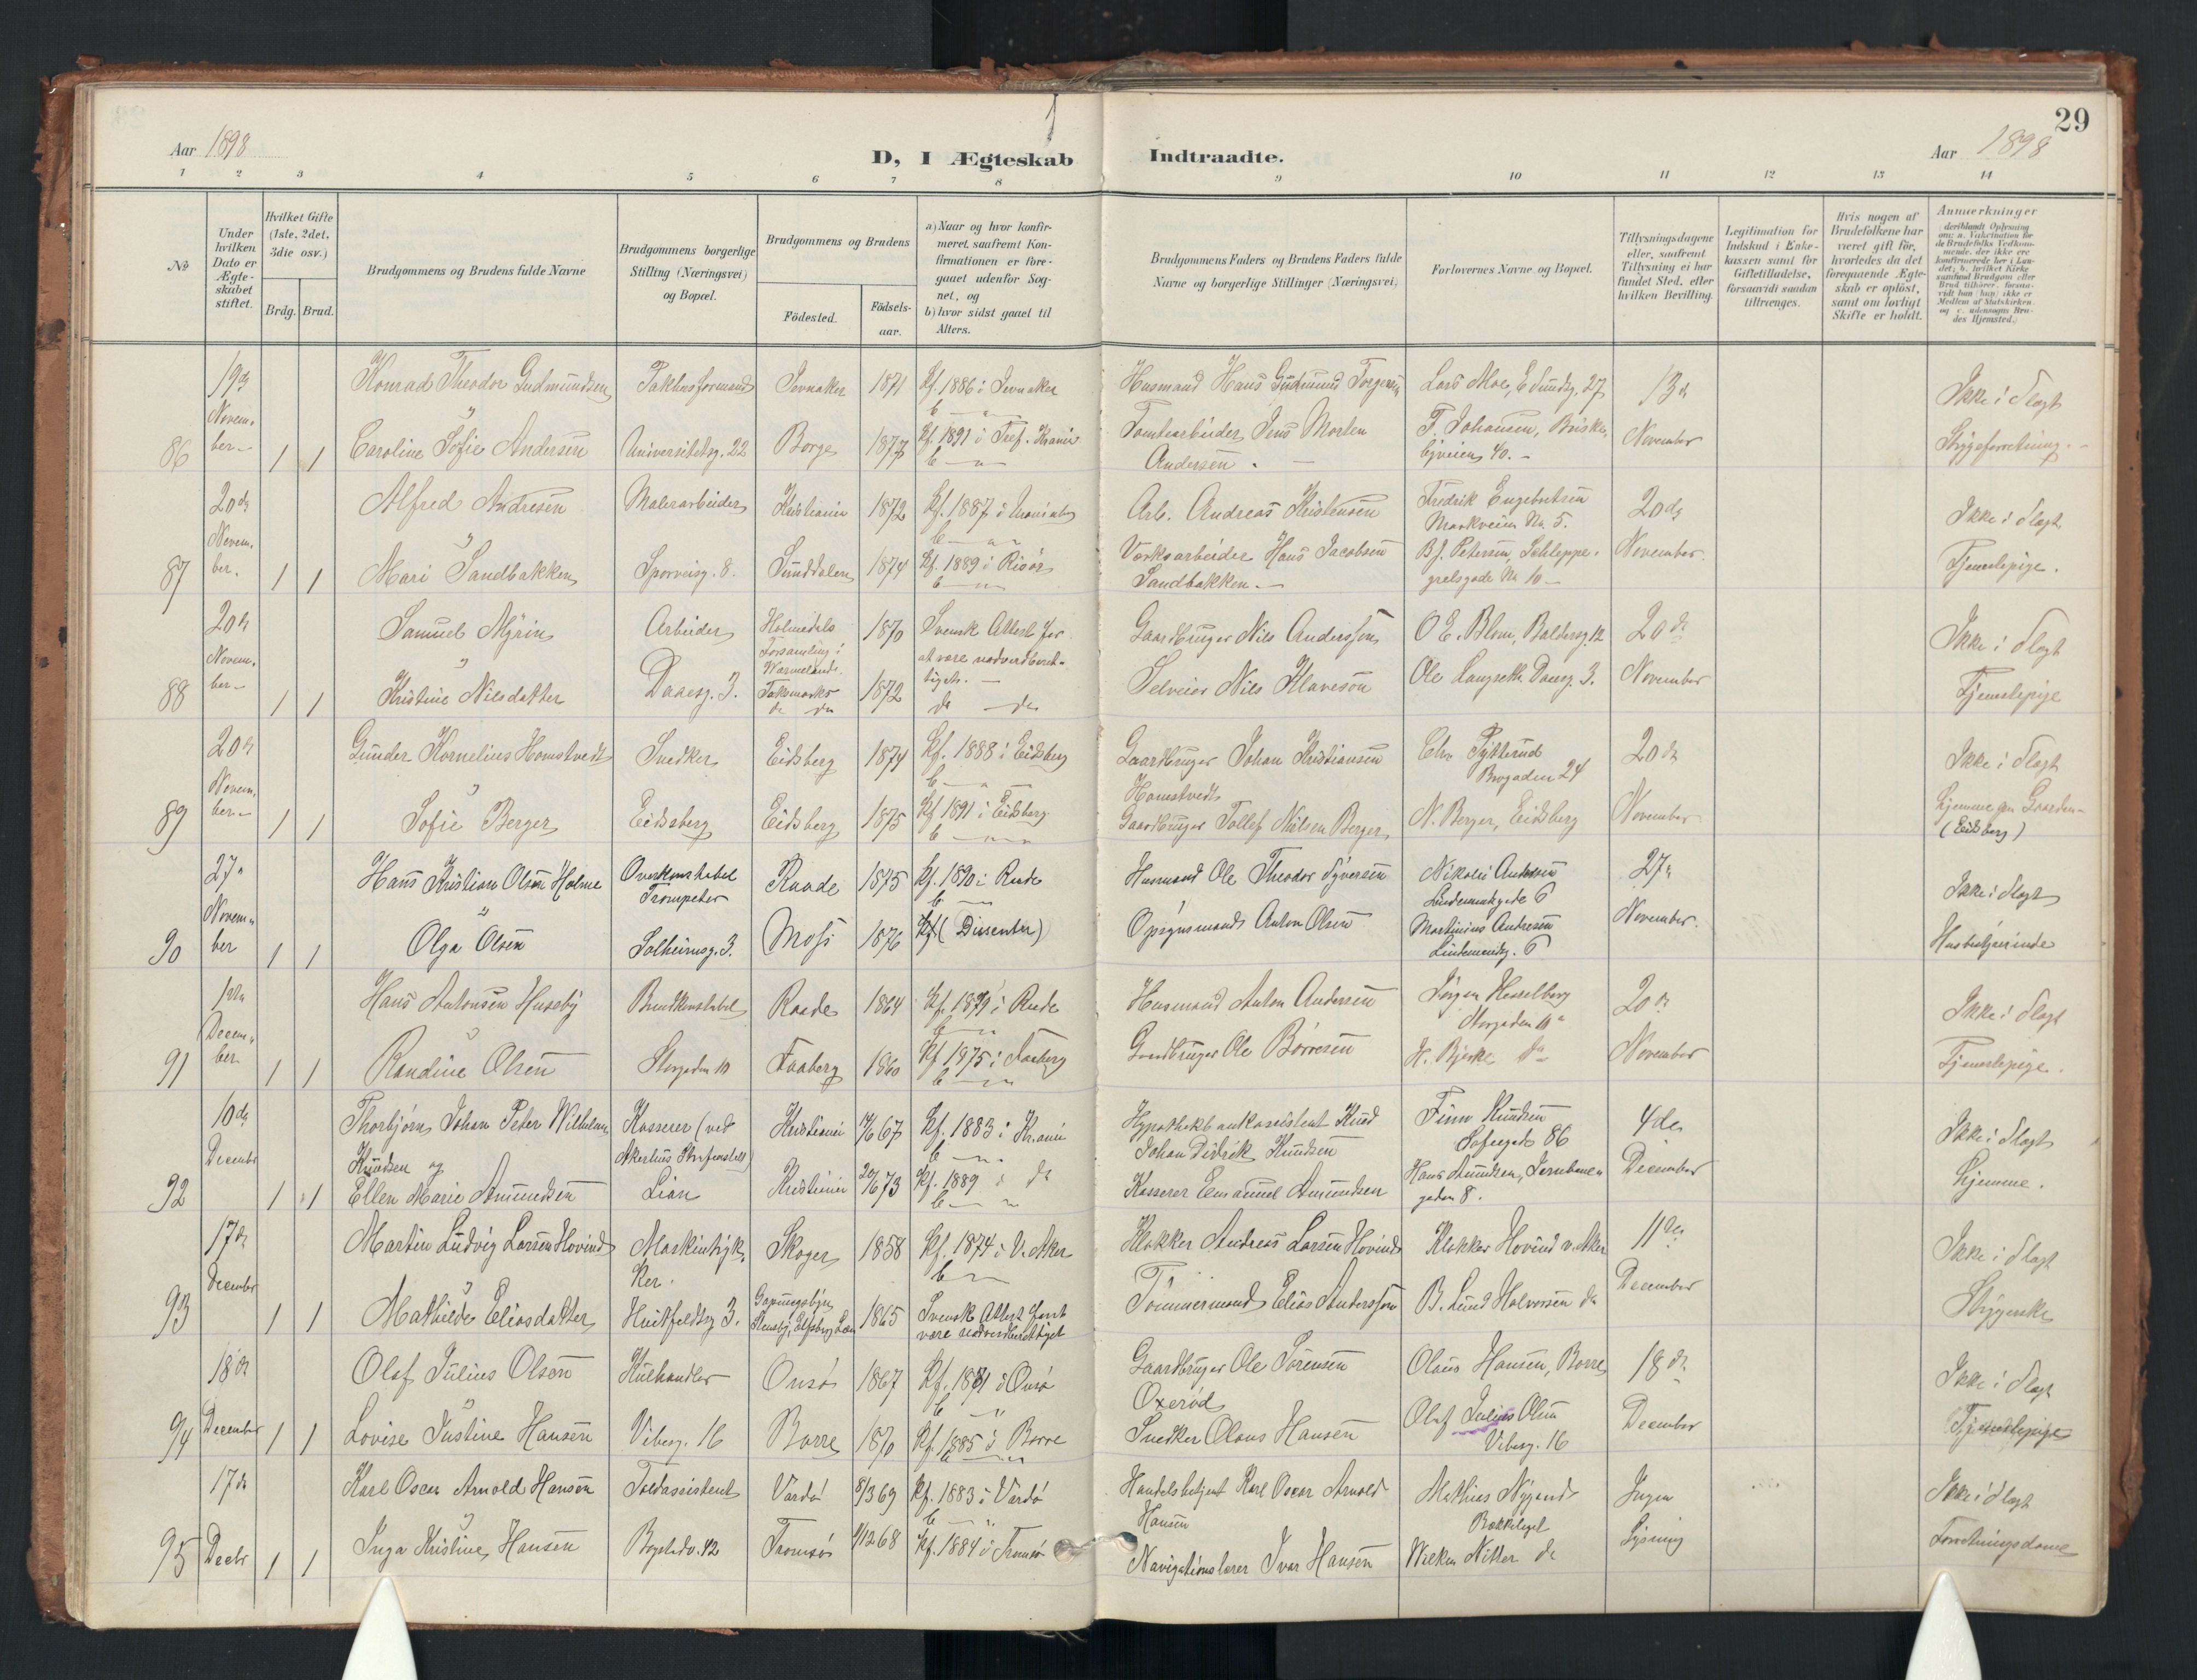 29
Aar 1898
D, I Ægteskab Indtraadte.
Aar 1898
1 2 3 4 5 6 7 8 9 10 11 12 13 14
No
Under hvilken Dato er Ægteskabet stiftet.
Hvilket Gifte (1ste, 2det, 3die osv.)
Brdg. Brud.
Brudgommens og Brudens fulde Navne
Brudgommens borgerlige Stilling (Næringsvei) og Bopæl.
Brudgommens og Brudens
Födested.
Födsels-aar.
a) Naar og hvor konfirmeret, saafremt Konfirmationen er foregaaet udenfor Sognet, og
b) hvor sidst gaaet til Alters.
Brudgommens Faders og Brudens Faders fulde Navne og borgerlige Stillinger (Næringsvei)
Forlovernes Navne og Bopæl.
Tillysningsdagene eller, saafremt Tillysning ei har fundet Sted, efter hvilken Bevilling.
Legitimation for Indskud i Enkekassen samt for Giftetilladelse, forsaavidt saadan tiltrænges.
Hvis nogen af Brudefolkene har været gift för, hvorledes da det foregaaende Ægteskab er oplöst, samt om lovligt Skifte er holdt.
Anmærkninger
86 19 November 1 1
Konrad Theodor Gudmundsen
Universitetsg. 22
Jevnaker 1871 Kf. 1886 i Jevnaker
Husmand Hans Gudmund
Lars Moe, 27
13 November
Ikke i Slegt
Caroline Sofie Andersen
Borge 1877 Kf. 1891 i
Tomtearbeider Jens Morten Andersen
T. Johansen, 40
Strygeforretning
87 20de November 1 1
Alfred Andresen
Malerarbeider
Kristiania 1872 Kf. 1887 i
Arb. Andreas Kristensen
Fredrik Engebretsen
Markveien No. 5.
20de November
Ikke i Slegt
Mari Sandbakken
Sporveisg. 8.
Sunddalen 1874 Kf. 1889 i Risör
Værksarbeider Hans Jacobsen Sandbakken
Petersen, Schleppegrelsgade No 10
Tjenestepige.
88 20de November 1 1
Samuel Myrin
Arbeider
Holmedals Forsamling i Wærmeland 1870
Svensk Attest for at være nadverdberettiget.
Gaardbruger Nils Andersson
O. E. Blom, Baldersg. 12
20de November
Ikke i Slegt
Kristine Nilsdatter
Daaesg. 3.
1872 do do
Selveier Nils
Ole Langseth Daaesg. 3.
Tjenestepige
89 20de November 1 1
Gunder Kornelius Homstvedt
Snedker
Eidsberg 1874 Kf. 1888 i Eidsberg
Gaardbruger Johan Kristiansen Homstvedt
Brogaden 24
20de November
Ikke i Slegt
Sofie Berger
Eidsberg
Eidsberg 1875 Kf. 1891 i Eidsberg
Gaardbruger Tollef Nilsen Berger
N. Berger, Eidsberg
Hjemme paa Gaarden
(Eidsberg)
90 27 November 1 1
Hans Kristian Olsen Holme
Overkonstabel Trompeter
Raade 1875 Kf. 1890 i Raade
Husmand Ole Theodor Syversen
Nikolai Andresen
6
27 November.
Ikke i Slegt
Olga Olsen
Solheimsg. 3.
Moss 1876 Kf. (Dissenter)
Opsynsmand Anton Olsen
Martinius Andresen
6
Husbestyrerinde
91 1ste December 1 1
Hans Antonsen Huseby
Brandkonstabel
Raade 1864 Kf. i Raade
Husmand Anton Andersen
Jørgen Hesselberg
Storgaden 10
20de November
Ikke i Slegt
Randine Olsen
Storgaden 10
Faaberg 1860 Kf. 1875 i Faaberg
Gaardbruger Ole Börresen
H. Bjerke do
Tjenestepige.
92 10de December 1 1
Thorbjørn Johan Peter Wilhelm Knudsen og
Kasserer (ved Akershus
Kristiania 67 Kf. 1883 i Kr.ania
Hypothekbankassistent Knud Johan Didrik Knudsen
Finn Knudsen
Sofiegade 86
4de December
Ikke i Slegt
Ellen Marie Amundsen
Lian
Kristiania 73 Kf. 1889 i do
Kasserer Emanuel Amundsen
Hans Amundsen, Jernbanegaden 8.
Hjemme.
93 17de December 1 1
Martin Ludvig Larsen Hovind
Maskintrykker.
Skoger 1858 Kf. 1874 i V. Aker
Klokker Andreas Larsen Hovind
Klokker Hovind v. Aker
11te December
Ikke i Slegt
Mathilde Eliasdatter
Huitfeldtsg 3.
1865
Svensk Attest for at være nadverdberettiget
Tömmermand Elias Andersson
B. Lund Halvorsen do
Strygerske
94 18de December 1 1
Olaf Julius Olsen
Kulhandler
Onsö 1867 Kf. 1881 i Onsö
Gaardbruger Ole Sörensen Oxeröd
Olaus Hansen, Borre
18de December
Ikke i Slegt
Lovise Justine Hansen
Vibesg. 16
Borre 1870 Kf. 1885 i Borre
Snedker Olaus Hansen
Olaf Julius Olsen
Vibesg. 16
Tjenestepige
95 17de Decbr 1 1
Karl Oscar Arnold Hansen
Toldassistent
Vardö 8/3 69 Kf. 1883 i Vardö
Handelsbetjent Karl Oscar Arnold Hansen
Mathias Nygaard
Ingen Lysning
Ikke i Slegt
Inga Kristine Hansen
Bogstadv. 42
Tromsö 1/12 68 Kf. 1884 i Tromsö
Navigationslærer Ivar Hansen
do
Forretningsdame